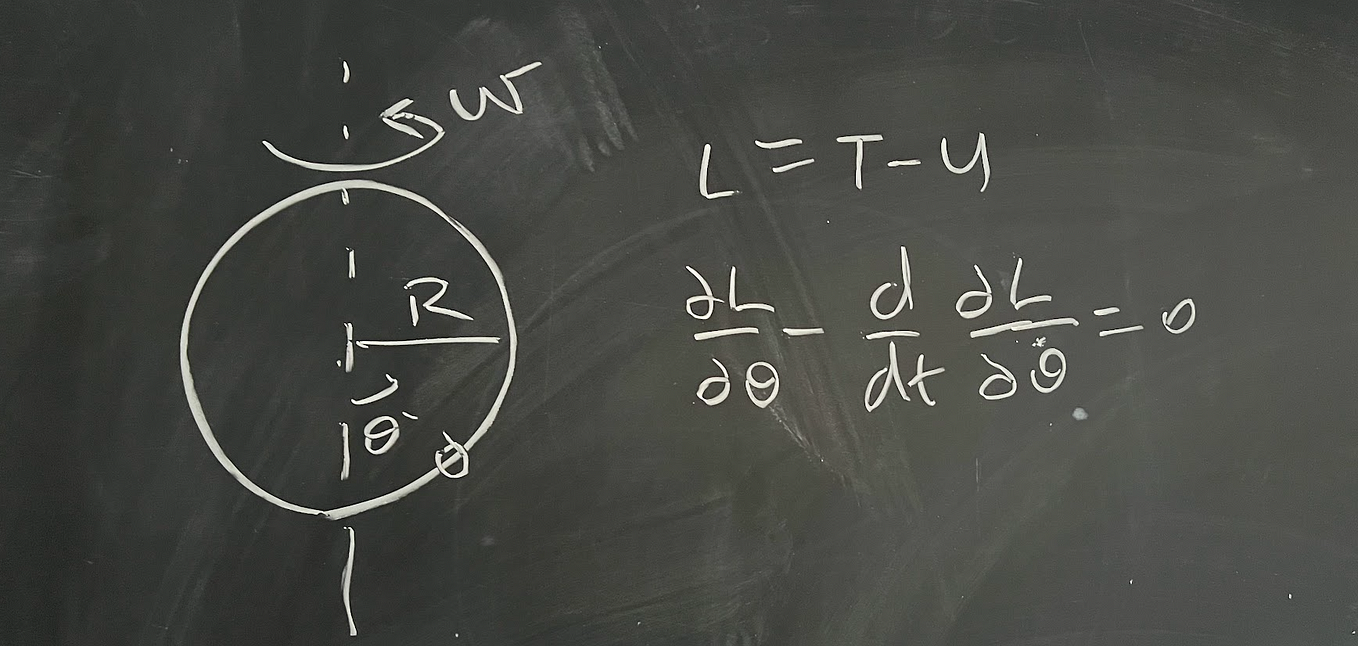 ω
R
θ
L = T - U
∂L/∂θ - d/dt ∂L/∂θ̇ = 0